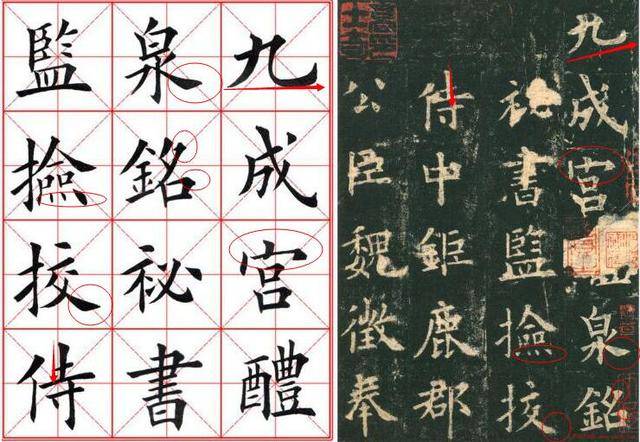 九成宮醴
泉銘祕書
監撿挍侍
九成宮泉銘
祕書監撿挍
侍中鉅鹿郡
公臣魏徵奉